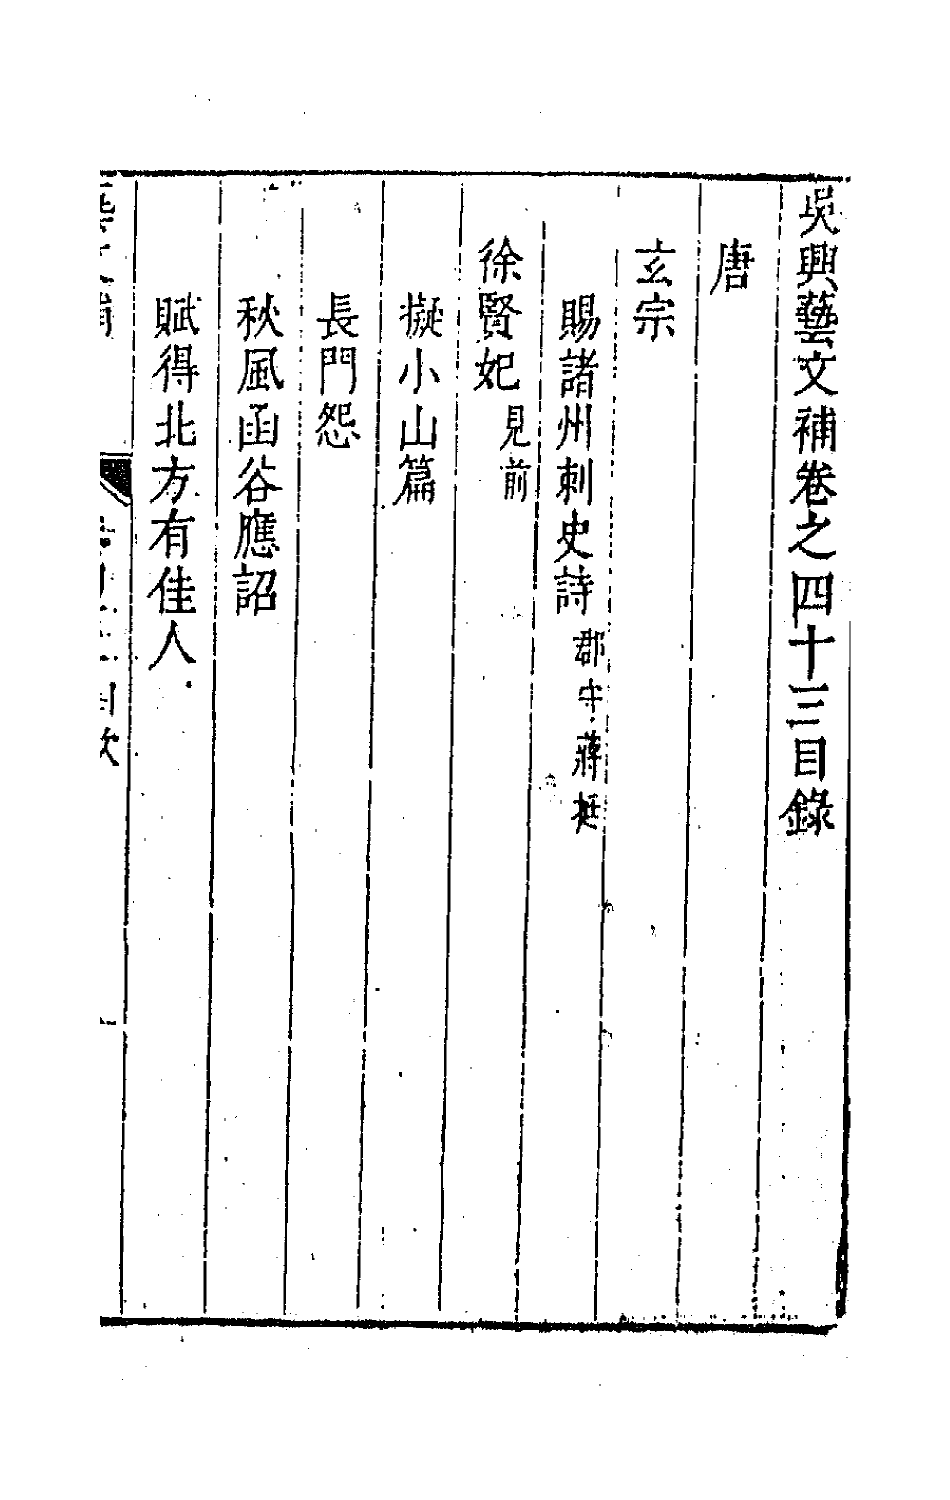 吳興藝文補卷之四十三目錄
唐
玄宗
賜諸州刺史詩 郡守蔣挺
徐賢妃 見前
擬小山篇
長門怨
秋風函谷應詔
賦得北方有佳人